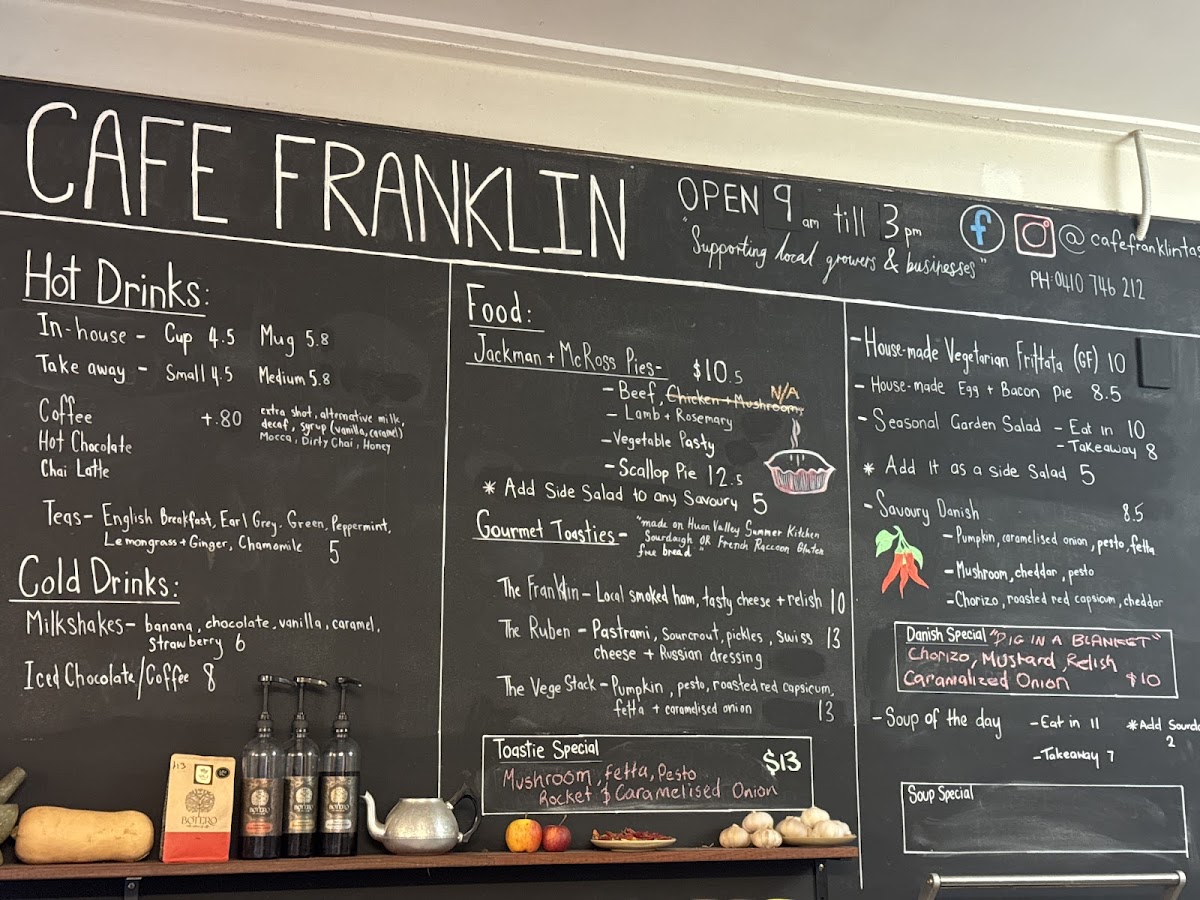 CAFE FRANKLIN
OPEN 9 am till 3 pm
"Supporting local growers & businesses"
f @cafefranklintas
PH: 0410 746 212
Hot Drinks:
In-house - Cup 4.5 Mug 5.8
Take away - Small 4.5 Medium 5.8
Coffee
Hot Chocolate
Chai Latte
+.80 extra shot, alternative milk,
decaf, syrup (vanilla, caramel)
Mocca, Dirty Chai, Honey
Teas- English Breakfast, Earl Grey, Green, Peppermint,
Lemongrass + Ginger, Chamomile 5
Cold Drinks:
Milkshakes- banana, chocolate, vanilla, caramel,
strawberry 6
Iced Chocolate/Coffee 8
Food:
Jackman + McRoss Pies- $10.5
- Beef, Chicken + Mushroom, N/A
- Lamb + Rosemary
- Vegetable Pasty
- Scallop Pie 12.5
* Add Side Salad to any Savoury 5
Gourmet Toasties - "made on Huon Valley Summer Kitchen
Sourdough OR French Raccoon Gluten
free bread"
The Franklin - Local smoked ham, tasty cheese + relish 10
The Ruben - Pastrami, Sourcrout, pickles, swiss 13
cheese + Russian dressing
The Vege Stack - Pumpkin, pesto, roasted red capsicum,
fetta + caramelised onion 13
Toastie Special
$13
Mushroom, fetta, Pesto
Rocket & Caramelised Onion
- House-made Vegetarian Frittata (GF) 10
- House-made Egg + Bacon Pie 8.5
- Seasonal Garden Salad - Eat in 10
- Takeaway 8
* Add it as a side Salad 5
- Savoury Danish 8.5
- Pumpkin, caramelised onion, pesto, fetta
- Mushroom, cheddar, pesto
- Chorizo, roasted red capsicum, cheddar
Danish Special "PIG IN A BLANKET"
Chorizo, Mustard, Relish
Caramalized Onion $10
- Soup of the day - Eat in 11 * Add Sourdo
2
- Takeaway 7
Soup Special
BOTERO